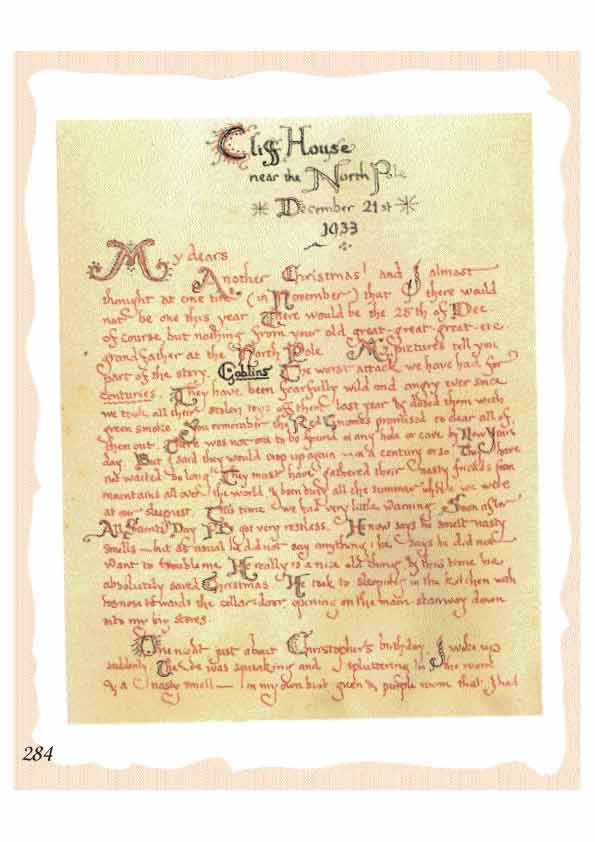 Cliff House
near the North Pole
December 21st
1933
My dears
Another Christmas! and I almost
thought at one time (in November) that there would
not be one this year. There would be the 25th of Dec.
of course, but nothing from your old great-great-great-etc
grandfather at the North Pole. My pictures tell you
part of the story. Goblins. The worst attack we have had for
centuries. They have been fearfully wild and angry ever since
we took all their stolen toys off them last year & dosed them with
green smoke. You remember the Red Gnomes promised to clear all of
them out. There was not one to be found in any hole or cave by New Years
day. But I said they would crop up again — in a century or so. They have
not waited so long! They must have gathered their nasty friends from
mountains all over the world, & been busy all the summer while we were
at our sleepiest. This time we had very little warning. Soon after
All Saints' Day PB got very restless. He now says he smelt nasty
smells — but as usual he did not say anything: he says he did not
want to trouble me. He really is a nice old thing, & this time he
absolutely saved Christmas. He took to sleeping in the kitchen with
his nose towards the cellar-door opening on the main-stairway down
into my big stores.
One night just about Christopher's birthday, I woke up
suddenly. There was squeaking and spluttering in the room
& a nasty smell — in my own best green & purple room that I had
284